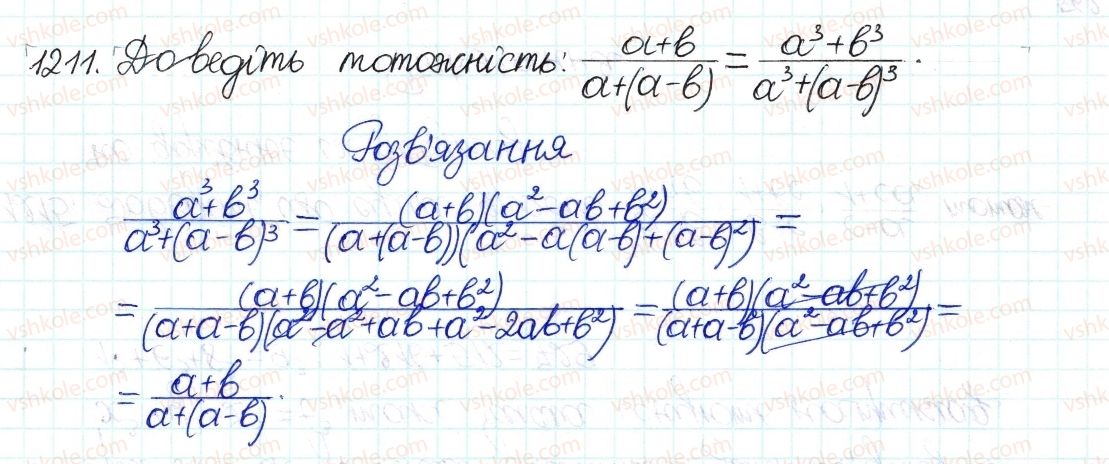 1211. Доведіть тотожність: (a+b)/(a+(a-b)) = (a³+b³)/(a³+(a-b)³).
Розв'язання
(a³+b³)/(a³+(a-b)³) = ((a+b)(a²-ab+b²))/((a+(a-b))(a²-a(a-b)+(a-b)²)) =
= ((a+b)(a²-ab+b²))/((a+a-b)(a²-a²+ab+a²-2ab+b²)) = ((a+b)(a²-ab+b²))/((a+a-b)(a²-ab+b²)) =
= (a+b)/(a+(a-b)).